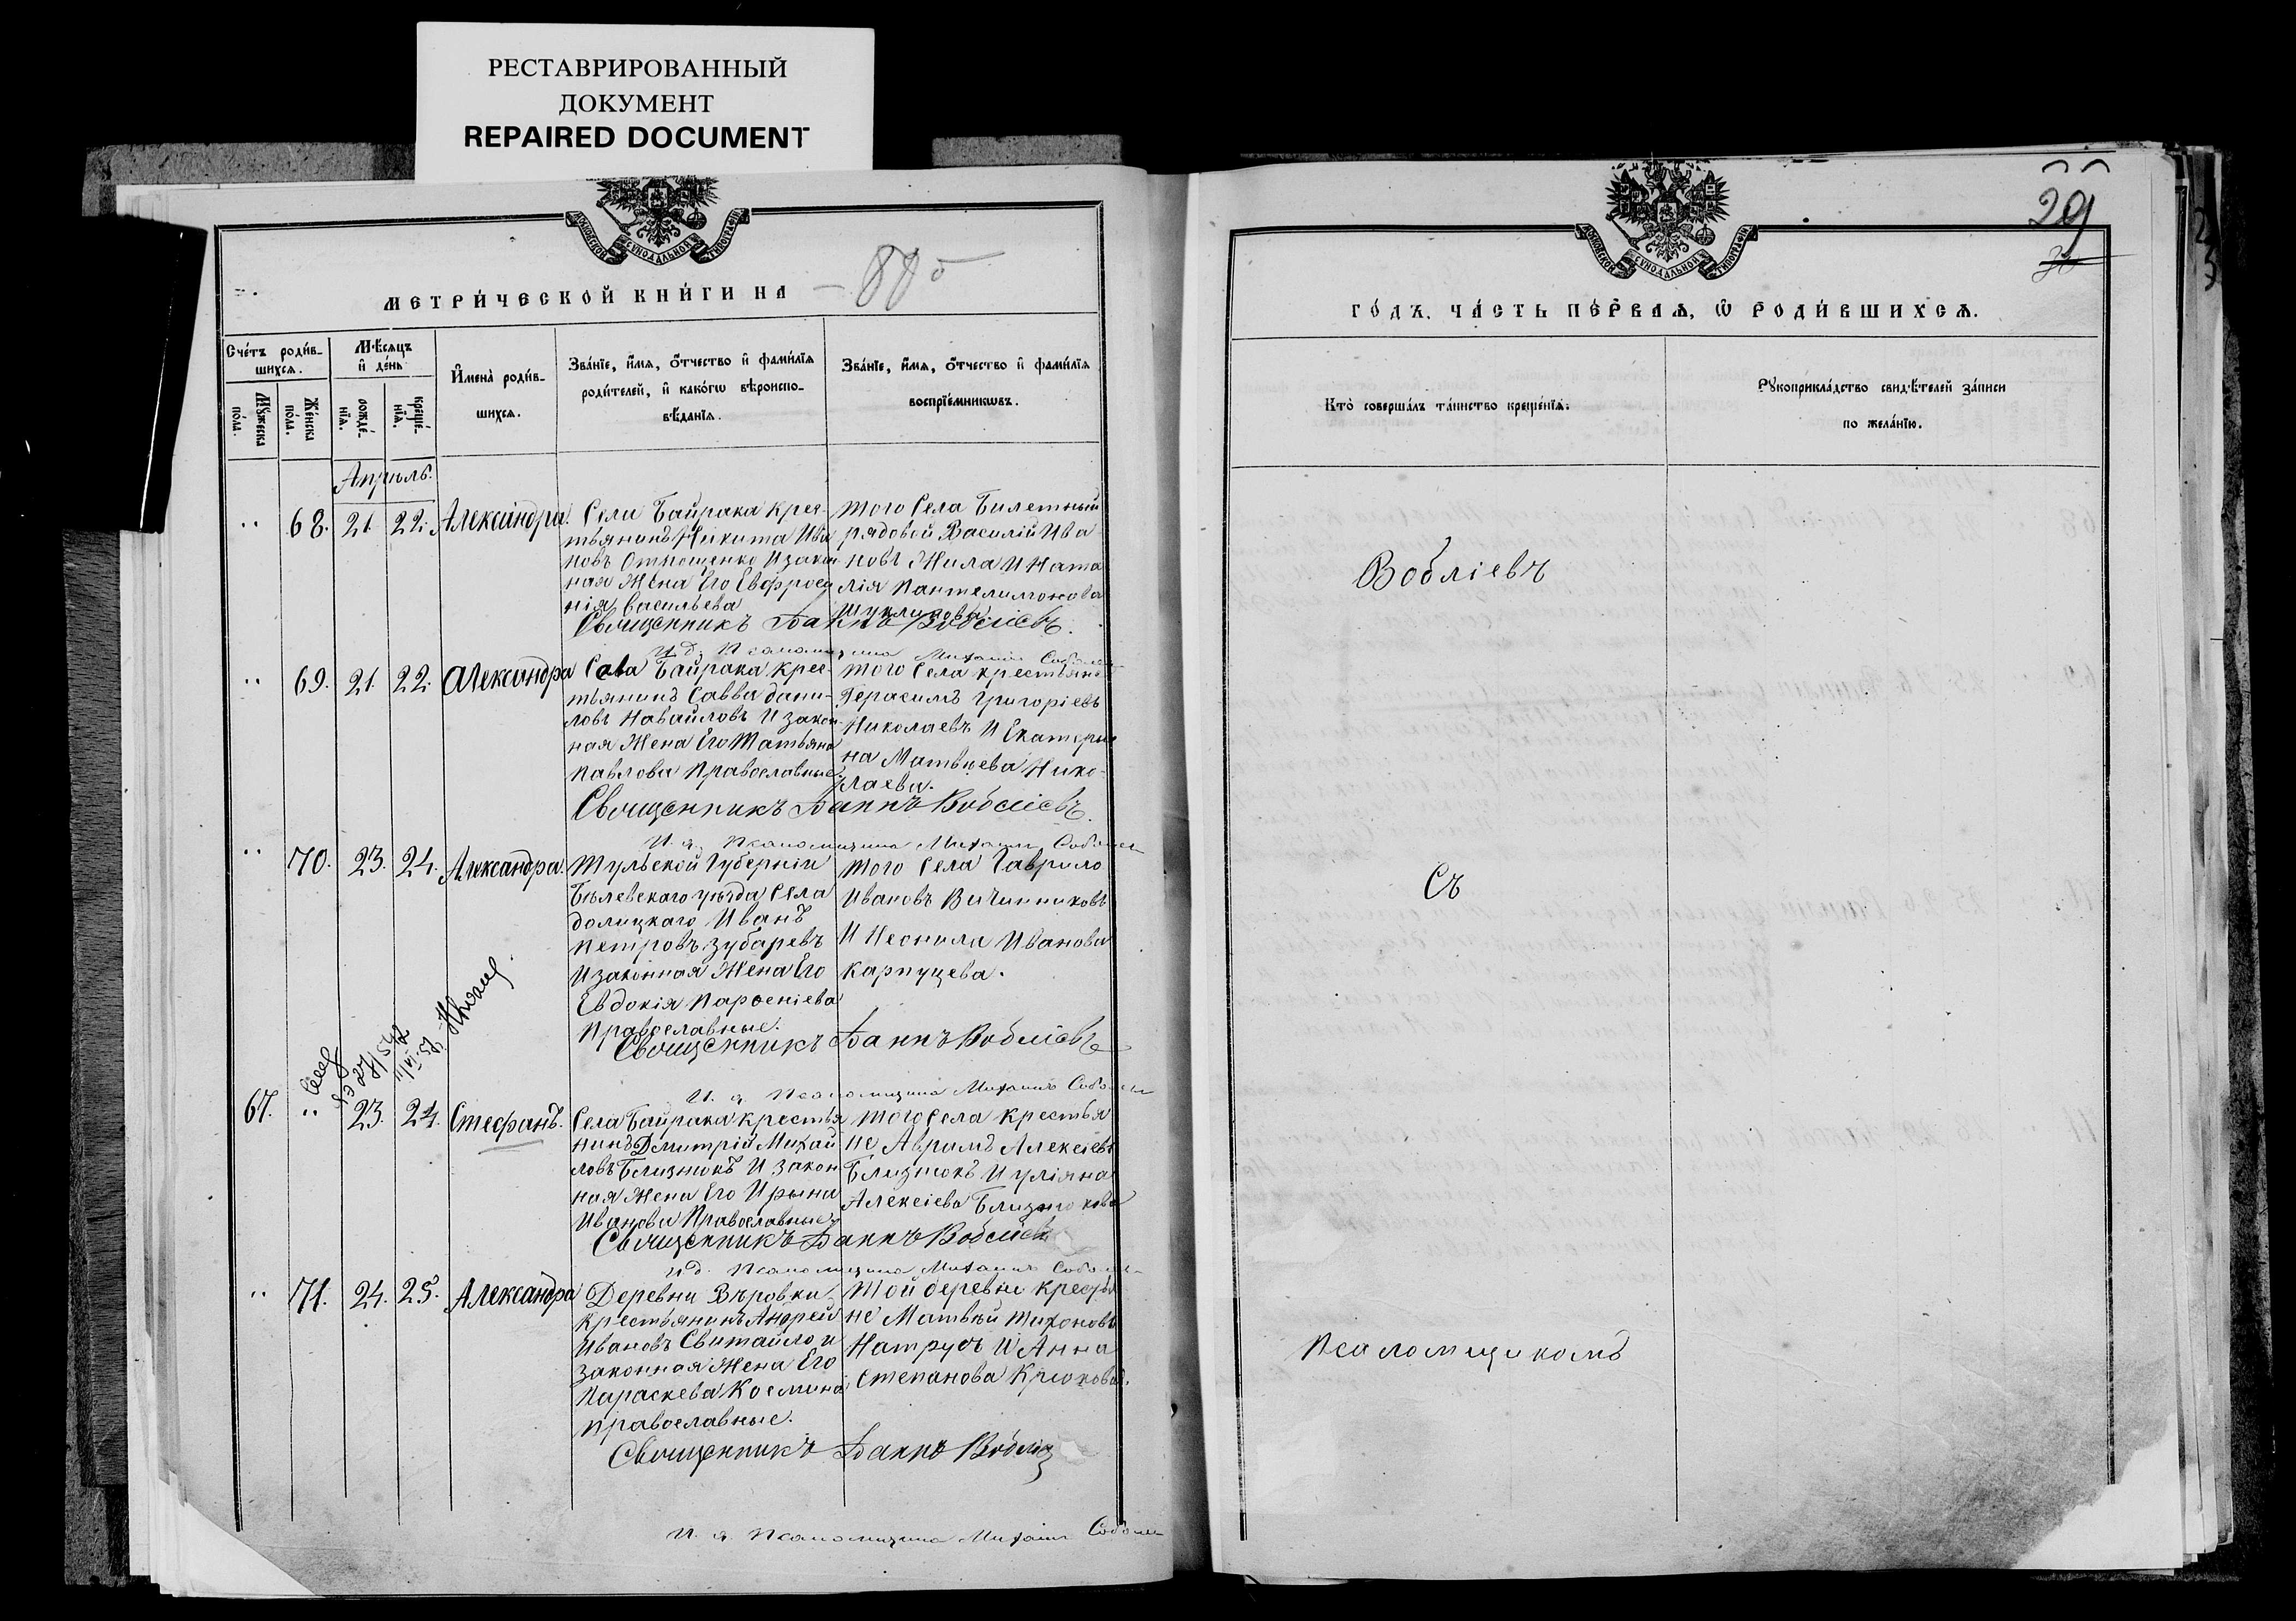 РЕСТАВРИРОВАННЫЙ
ДОКУМЕНТ
REPAIRED DOCUMENT
МОСКОВСКОЙ СѴНОДАЛЬНОЙ ТИПОГРАФІИ
МЕТРИ́ЧЕСКОЙ КНИ́ГИ НА
Сче́тъ роди́в-
шихсѧ.
Мѣ́сѧцъ
и҆ де́нь
Мꙋ́жеска
по́ла.
Же́нска
по́ла.
рожде́-
нїѧ.
креще́-
нїѧ.
И҆мена̀ роди́в-
шихсѧ.
Зва́нїе, и҆́мѧ, ѻ҆́тчество и҆ фами́лїѧ
роди́телей, и҆ како́гѡ вѣроиспо-
вѣ́данїѧ.
Зва́нїе, и҆́мѧ, ѻ҆́тчество и҆ фами́лїѧ
воспрїе́мникѡвъ.
Апрѣль.
68. 21. 22. Александра.
Села Байрака крес-
тьянинъ Никита Ива
новъ и закон
ная Жена Его Евфроси
нія Васильева
того Села Билетный
рядовой Василій Ива
новъ Жила и Ната
лія Пантелимонова
Священникъ Іоаннъ Вобліевъ.
И. д. Псаломщика Михаилъ
69. 21. 22. Александра
Села Байрака крес-
тьянинъ Савва Дани-
ловъ Навайловъ и закон
ная Жена Его Татьяна
Павлова Православные
того Села крестьяне
Герасимъ Григоріевъ
Николаевъ и Екатери
на Матвѣева Нико-
лаева.
Священникъ Іоаннъ Вобліевъ.
И. д. Псаломщика Михаилъ
70. 23. 24. Александра.
Тульской Губерніи
Бѣлевскаго уѣзда Села
Долецкаго Иванъ
Петровъ Зубаревъ
и законная Жена Его
Евдокія Парѳеніева
Православные.
того Села Гаврило
Ивановъ Вичинниковъ
и Неонила Иванова
Карпуцева.
Священникъ Іоаннъ Вобліевъ
И. д. Псаломщика Михаилъ
67. 23. 24. Стефанъ.
Села Байрака крестья
нинъ Дмитрій Михай
ловъ Близнюкъ и закон
ная Жена Его Ирина
Иванова Православные
того Села крестья
не Аврамъ Алексіевъ
Близнюкъ и Уліяна
Алексіева Близнюкова
Священникъ Іоаннъ Вобліевъ
И. д. Псаломщика Михаилъ
71. 24. 25. Александра
Деревни Вѣровки
крестьянинъ Андрей
Ивановъ Свитайло и
законная Жена Его
Параскева Космина
православные.
Той деревни крестья
не Матвѣй Тихоновъ
Натрусъ и Анна
Степанова Крюкова.
Священникъ Іоаннъ
И. д. Псаломщика Михаилъ
29
30
МОСКОВСКОЙ СѴНОДАЛЬНОЙ ТИПОГРАФІИ
ГО́ДЪ, ЧА́СТЬ ПЕ́РВАѦ, Ѡ҆ РОДИ́ВШИХСѦ.
Кто̀ соверша́лъ та́инство креще́нїѧ.
Рꙋкоприкла́дство свидѣ́телей за́писи
по жела́нїю.
Вобліевъ
Съ
Псаломщикомъ